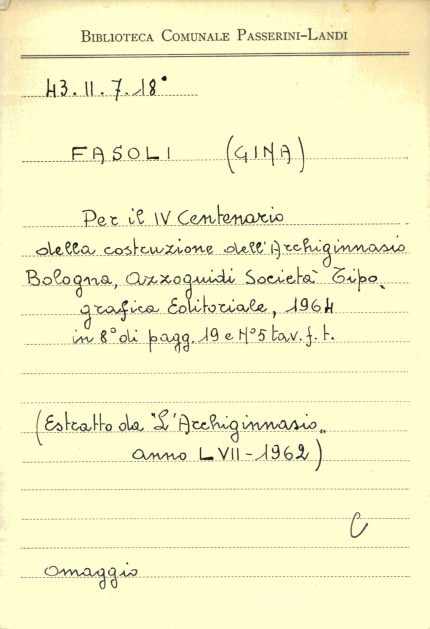 BIBLIOTECA COMUNALE PASSERINI-LANDI
43.II.7.18°
FASOLI (GINA)
Per il IV Centenario
della costruzione dell'Archiginnasio
Bologna, Azzoguidi Società Tipo,
grafica Editoriale, 1964
in 8° di pagg. 19 e N° 5 tav. f. t.
(Estratto da "L'Archiginnasio„
anno LVII - 1962)
C
Omaggio